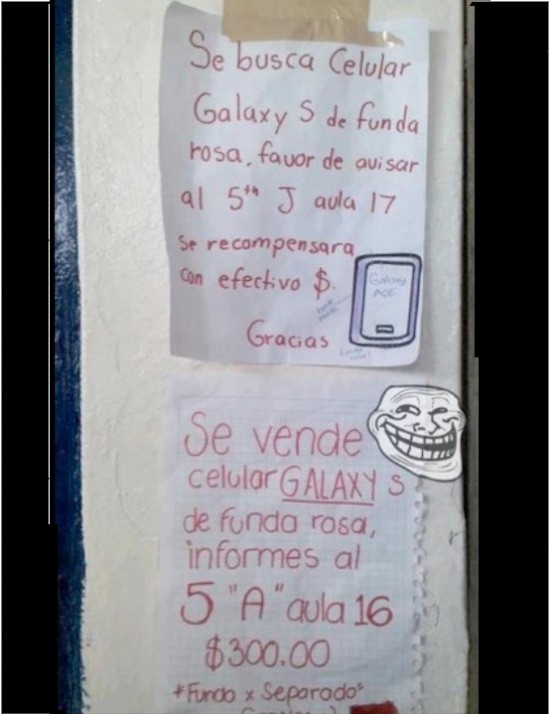 Se busca Celular
Galaxy S de funda
rosa, favor de avisar
al 5th J aula 17
Se recompensara
con efectivo $.
Galaxy
ACE
Gracias
Se vende
celular GALAXY S
de funda rosa,
informes al
5 "A" aula 16
$300.00
*Funda x Separado*